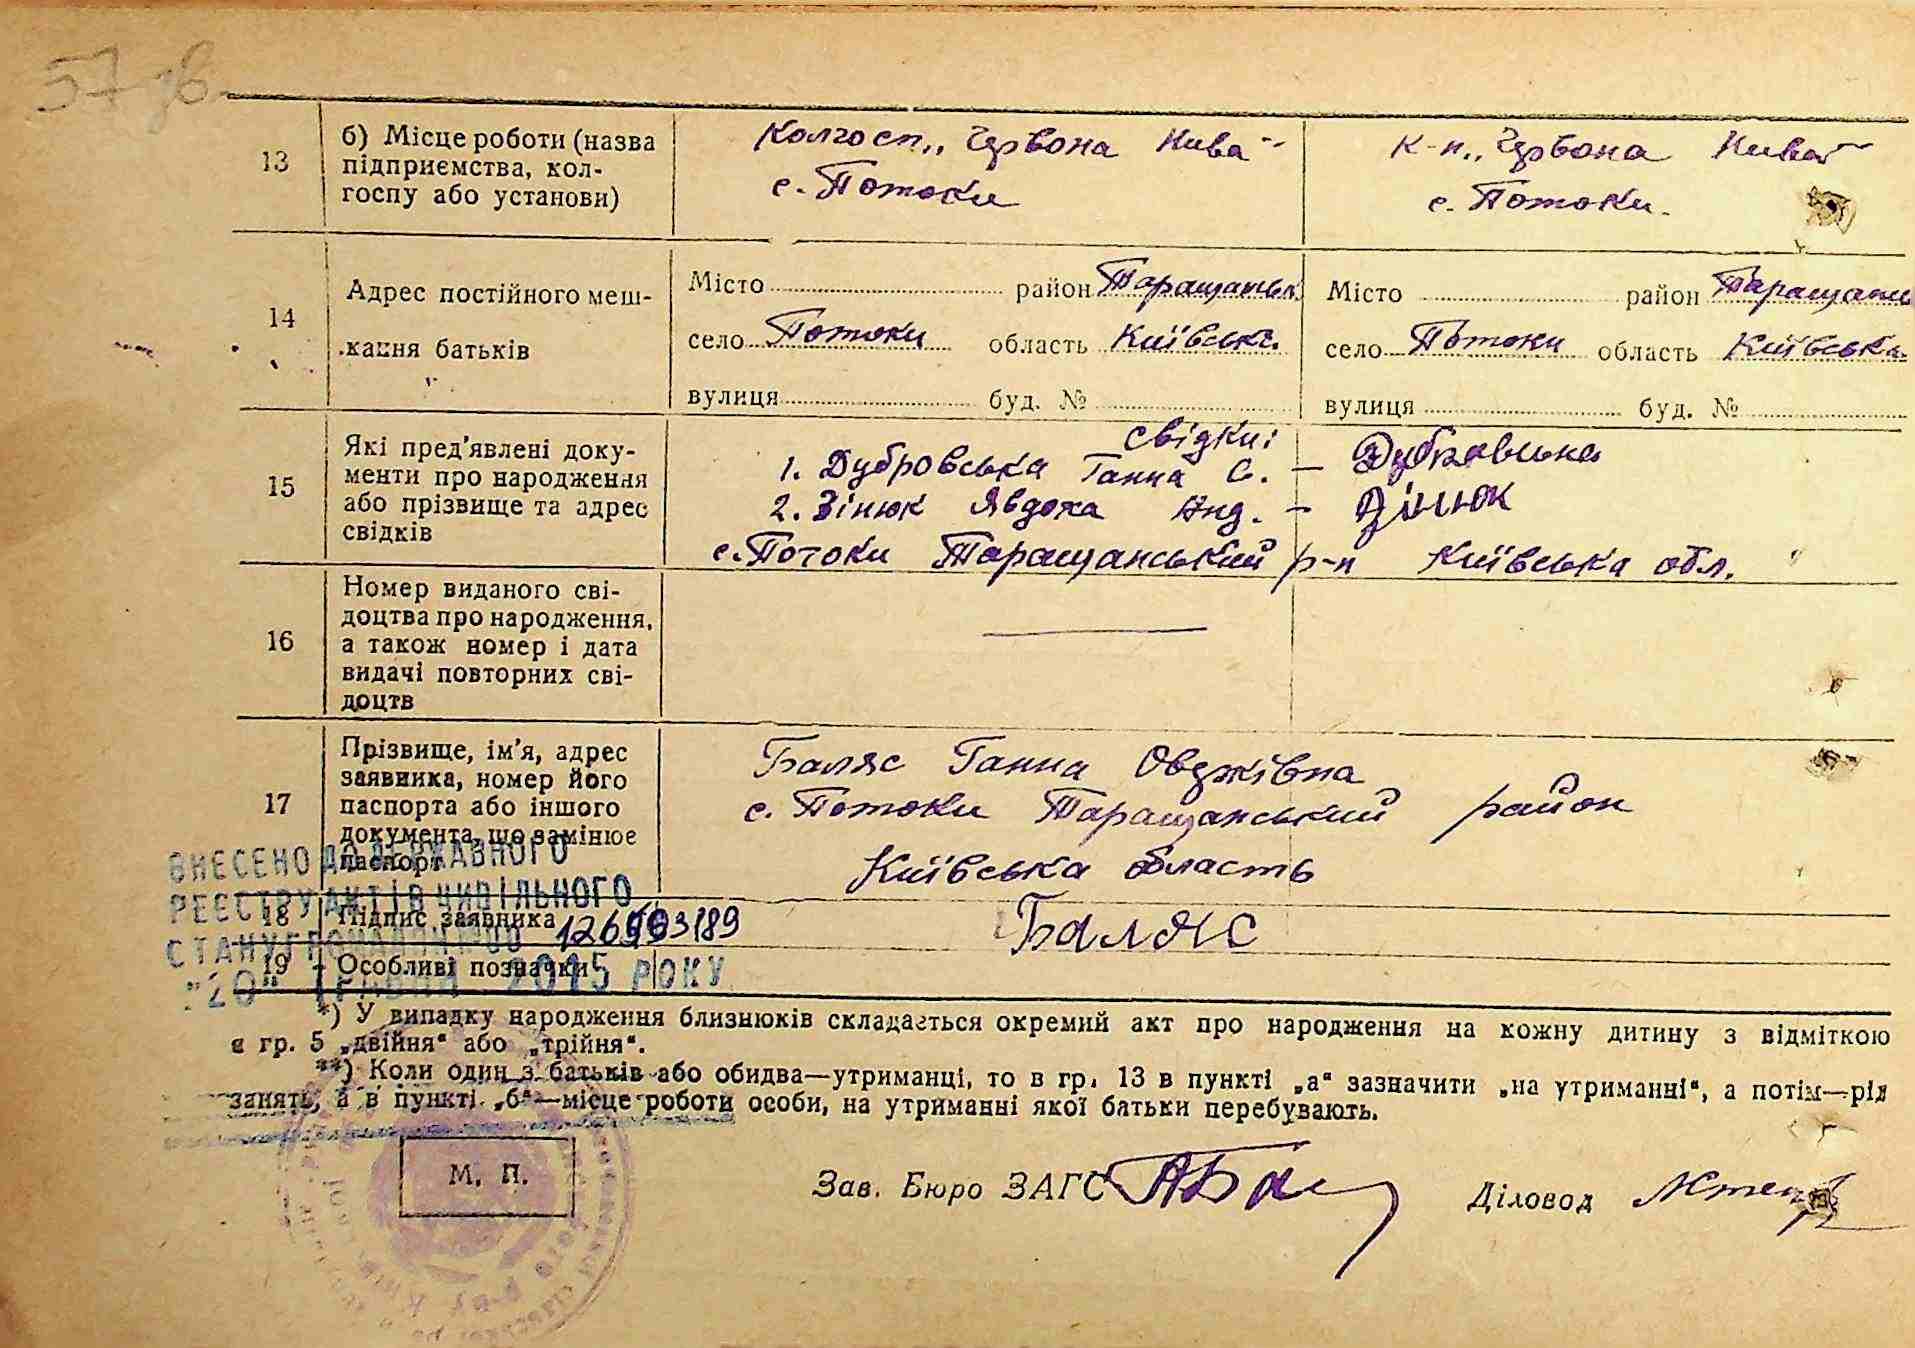 57 зв.
13
б) Місце роботи (назва
підприємства, кол-
госпу або установи)
Колгосп „Червона Нива"
с. Потоки
к-п „Червона Нива"
с. Потоки.
14
Адрес постійного меш-
кання батьків
Місто район Таращанськ.
село Потоки область Київська.
вулиця буд. №
Місто район
село Потоки область Київська.
вулиця буд. №
15
Які пред'явлені доку-
менти про народження
або прізвище та адрес
свідків
свідки:
1. Дубровська Ганна С. — Дубровська
2. Зінюк Явдоха Анд. — Зінюк
с. Потоки Таращанський р-н Київська обл.
16
Номер виданого сві-
доцтва про народження,
а також номер і дата
видачі повторних сві-
доцтв
17
Прізвище, ім'я, адрес
заявника, номер його
паспорта або іншого
документа, що замінює
паспорт
Баляс Ганна Овджівна
с. Потоки Таращанський район
Київська область
18
Підпис заявника
Баляс
19
Особливі позначки
ВНЕСЕНО ДО ДЕРЖАВНОГО
РЕЄСТРУ АКТІВ ЦИВІЛЬНОГО
СТАНУ
"20" ТРАВНЯ 2015 РОКУ
*) У випадку народження близнюків складається окремий акт про народження на кожну дитину з відміткою
в гр. 5 „двійня“ або „трійня“.
**) Коли один з батьків або обидва—утриманці, то в гр. 13 в пункті „а“ зазначити „на утриманні“, а потім—рід
занять, а в пункті „б“—місце роботи особи, на утриманні якої батьки перебувають.
М. П.
Зав. Бюро ЗАГС
Діловод